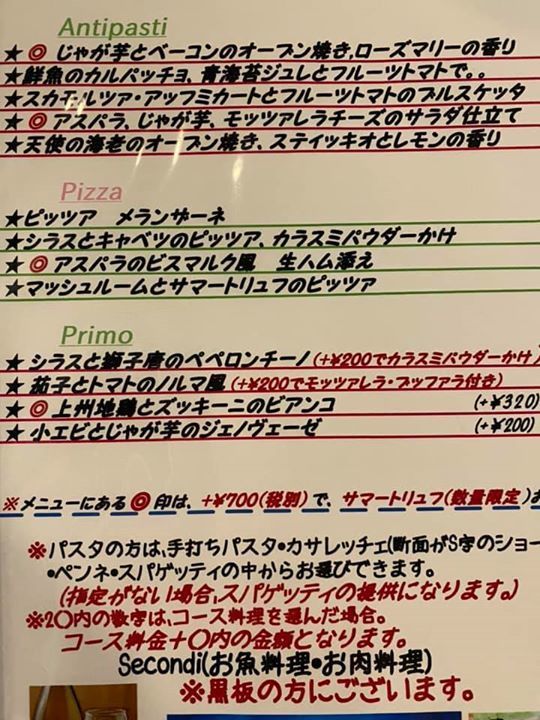 Antipasti
★ ◎ じゃが芋とベーコンのオーブン焼き,ローズマリーの香り
★鮮魚のカルパッチョ、青海苔ジュレとフルーツトマトで。。
★スカモルツァ・アッフミカートとフルーツトマトのブルスケッタ
★ ◎ アスパラ、じゃが芋、モッツァレラチーズのサラダ仕立て
★天使の海老のオーブン焼き、スティッキオとレモンの香り
Pizza
★ピッツア メランザーネ
★シラスとキャベツのピッツア、カラスミパウダーかけ
★ ◎ アスパラのビスマルク風 生ハム添え
★マッシュルームとサマートリュフのピッツァ
Primo
★ シラスと獅子唐のペペロンチーノ(+¥200でカラスミパウダーかけ)
★ 茄子とトマトのノルマ風(+¥200でモッツァレラ・ブッファラ付き)
★ ◎ 上州地鶏とズッキーニのビアンコ (+¥320)
★ 小エビとじゃが芋のジェノヴェーゼ (+¥200)
※メニューにある ◎ 印は、+¥700(税別)で、サマートリュフ(数量限定)お
※パスタの方は、手打ちパスタ•カサレッチェ(断面がS字のショー
•ペンネ•スパゲッティの中からお選びできます。
(指定がない場合,スパゲッティの提供になります。)
※2〇内の数字は、コース料理を選んだ場合。
コース料金+〇内の金額となります。
Secondi(お魚料理•お肉料理)
※黒板の方にございます。